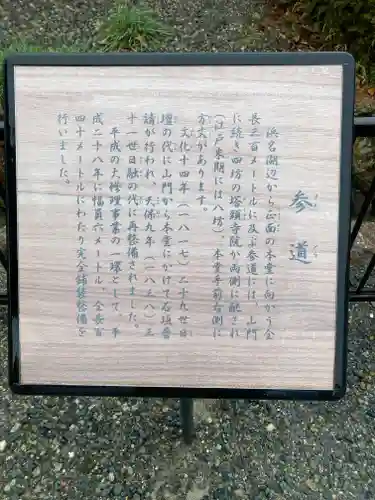 参道
浜名湖辺から正面の本堂に向かう全
長三百メートルに及ぶ参道には、山門
に続き四坊の塔頭寺院が両側に配され
(江戸末期には八坊)、本堂手前右側に
方丈があります。
文化十四年(一八一七)三十九世日
の代に山門から本堂にかけて石垣普
請が行われ、天保九年(一八三八)三
十一世日融の代に再整備されました。
平成の大修理事業の一環として、平
成二十八年に幅員六メートル、全長百
四十メートルにわたり完全舗装整備を
行いました。